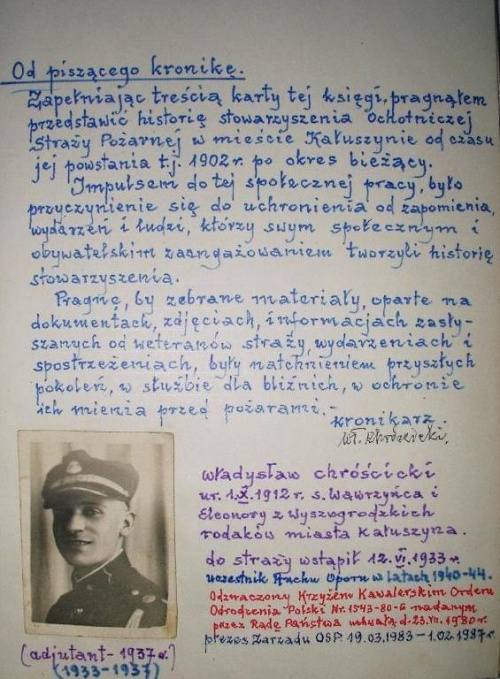 Od piszącego kronikę.
Zapełniając treścią karty tej księgi, pragnąłem
przedstawić historię stowarzyszenia Ochotniczej
Straży Pożarnej w mieście Kałuszynie od czasu
jej powstania t.j. 1902 r. po okres bieżący.
Impulsem do tej społecznej pracy, było
przyczynienie się do uchronienia od zapomienia,
wydarzeń i ludzi, którzy swym społecznym i
obywatelskim zaangażowaniem tworzyli historię
stowarzyszenia.
Pragnę, by zebrane materiały, oparte na
dokumentach, zdjęciach, informacjach zasły-
szanych od weteranów straży, wydarzeniach i
spostrzeżeniach, były natchnieniem przyszłych
pokoleń, w służbie dla bliźnich, w ochronie
ich mienia przed pożarami.-
kronikarz.
Wł. Chróścicki.
Władysław Chróścicki
ur. 1.X.1912 r. s. Wawrzyńca i
Eleonory z Wyszogrodzkich
rodaków miasta Kałuszyna.
do straży wstąpił 12.VI.1933 r.
uczestnik Ruchu Oporu w latach 1940-44.
Odznaczony Krzyżem Kawalerskim Orderu
Odrodzenia Polski Nr. 1543-80-6 nadanym
przez Radę Państwa uchwałą d. 23.VII.1980 r.
prezes Zarządu OSP. 19.03.1983 - 1.02.1987 r.
(adjutant - 1937 r.)
(1933-1937)